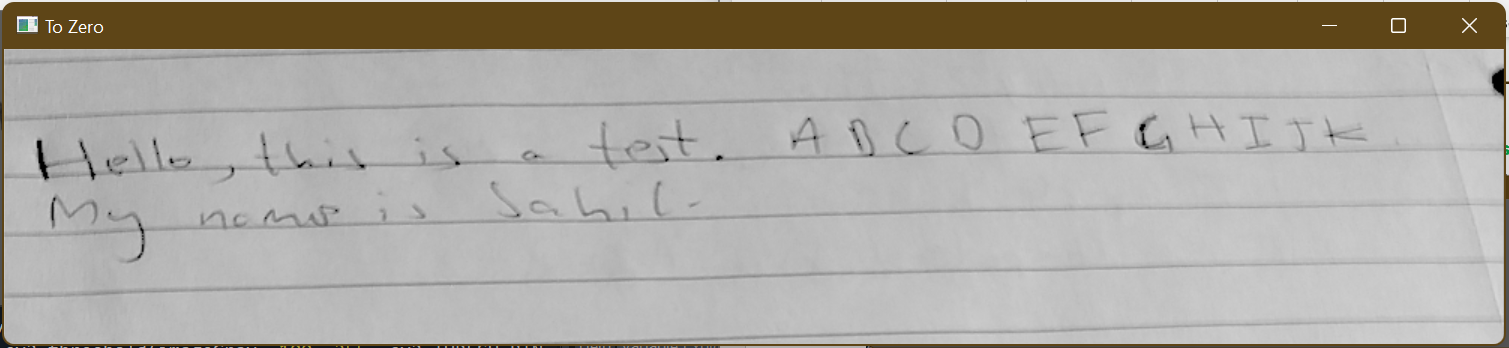 To Zero
Hello, this is a test. A B C D E F G H I J K
My name is Sahil.